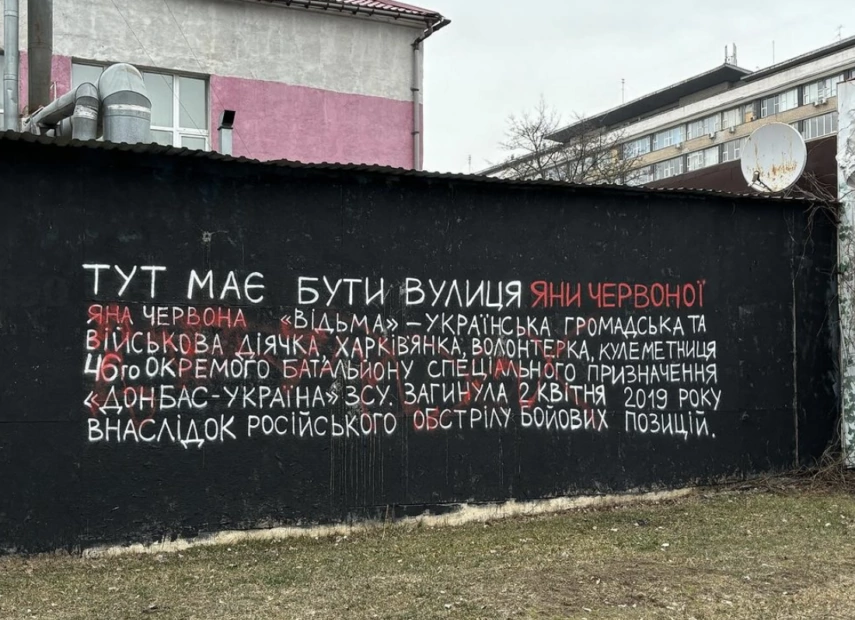 ТУТ МАЄ БУТИ ВУЛИЦЯ ЯНИ ЧЕРВОНОЇ
ЯНА ЧЕРВОНА «ВІДЬМА» – УКРАЇНСЬКА ГРОМАДСЬКА ТА
ВІЙСЬКОВА ДІЯЧКА, ХАРКІВ'ЯНКА, ВОЛОНТЕРКА, КУЛЕМЕТНИЦЯ
46го ОКРЕМОГО БАТАЛЬЙОНУ СПЕЦІАЛЬНОГО ПРИЗНАЧЕННЯ
«ДОНБАС-УКРАЇНА» ЗСУ. ЗАГИНУЛА 2 КВІТНЯ 2019 РОКУ
ВНАСЛІДОК РОСІЙСЬКОГО ОБСТРІЛУ БОЙОВИХ ПОЗИЦІЙ.